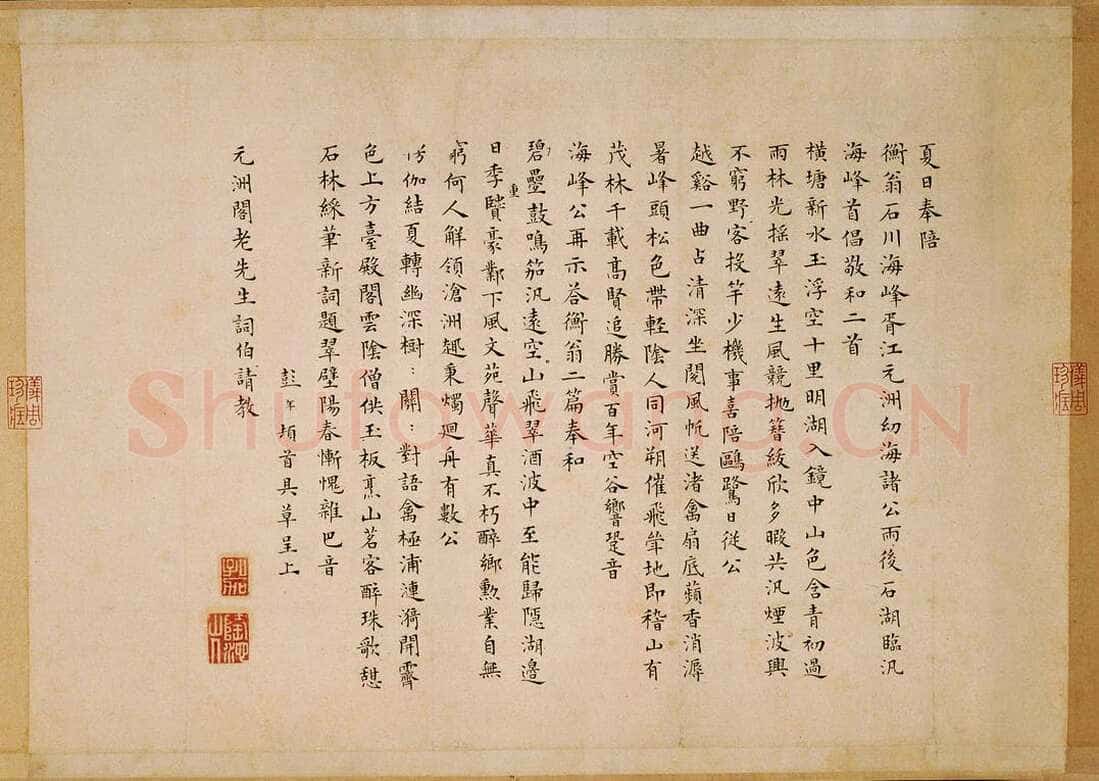 夏日奉陪
衡翁石川海峰胥江元洲幼海諸公雨後石湖臨汎
海峰首倡敬和二首
橫塘新水玉浮空十里明湖入鏡中山色含青初過
雨林光搖翠遠生風競拋簪紱欣多暇共汎煙波興
不窮野客投竿少機事喜陪鷗鷺日從公
越谿一曲占清深坐閱風帆送渚禽扇底蘋香消溽
暑峰頭松色帶輕陰人同河朔催飛斝地即稽山有
茂林千載高賢追勝賞百年空谷響跫音
海峰公再示荅衡翁二篇奉和
碧疊鼓鳴笳汎遠空山飛翠酒波中至能歸隱湖邊
日季重賢豪鄴下風文苑聲華真不朽醉鄉勲業自無
窮何人解領滄洲趣秉燭迴舟有數公
伽結夏轉幽深樹：關：對語禽極浦漣漪開霽
色上方臺殿閣雲陰僧供玉板烹山茗客醉珠歌憇
石林綵筆新詞題翠壁陽春慚愧雜巴音
彭年頓首具草呈上
元洲閣老先生詞伯請教
孔加
隆池山人
儀周珍藏
儀周珍藏
Shufawang.CN